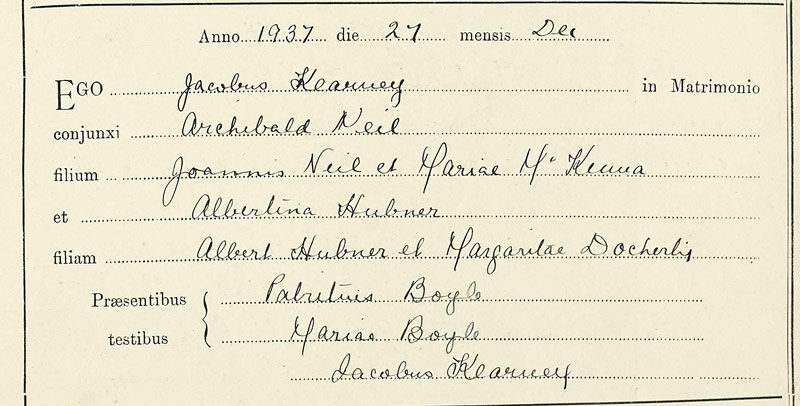 Anno 1937 die 27 mensis Dec
EGO Jacobus Kearney in Matrimonio
conjunxi Archibald Neil
filium Joannis Neil et Mariae McKenna
et Albertina Hubner
filiam Albert Hubner et Margaritae Docherty
Præsentibus Patritius Boyle
testibus Mariae Boyle
Jacobus Kearney